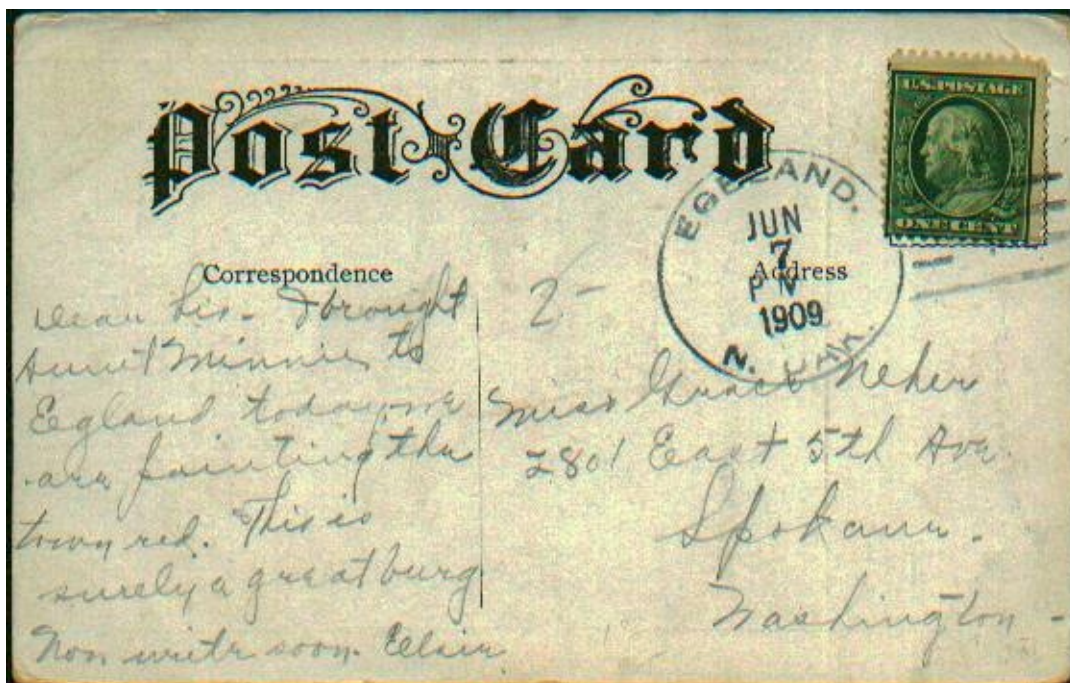 Post Card
U.S. POSTAGE
ONE CENT
EGELAND.
JUN
7
PM
1909
N. DAK.
Correspondence
Address
Dear Sis. I brought
Aunt Minnie to
Egland today, we
are painting the
town red. This is
surely a great burg
Now write soon.
2-
Miss Grace Neher
2801 East 5th Ave.
Spokane.
Washington -